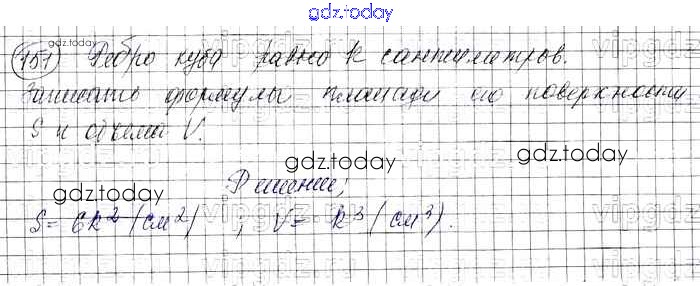 gdz.today
151 Ребро куба равно k сантиметров.
gdz.today
Записать формулы площади его поверхности
S и объема V.
gdz.today
gdz.today
gdz.today
Решение;
S = 6k² (см²) ; V = k³ (см³).